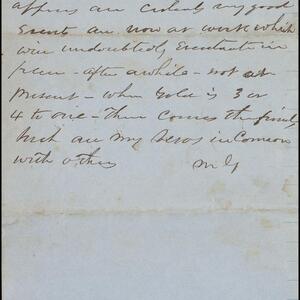 affairs are certainly very good
Events are now at work which
will undoubtedly Eventuate in
peace - after awhile - not at
present - when Gold is 3 or
4 to one - then comes the
Such are my in Common
with others M G